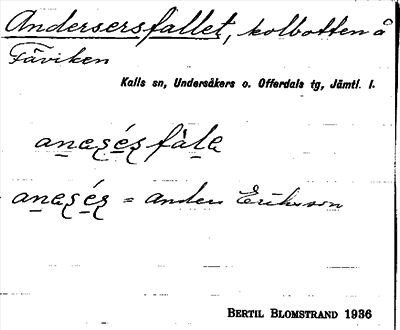 Andersersfallet, kolbotten å
Fäviken
Kalls sn, Undersåkers o. Offerdals tg, Jämtl. l.
anesésfale
anesés = Anders Eriksson
BERTIL BLOMSTRAND 1936